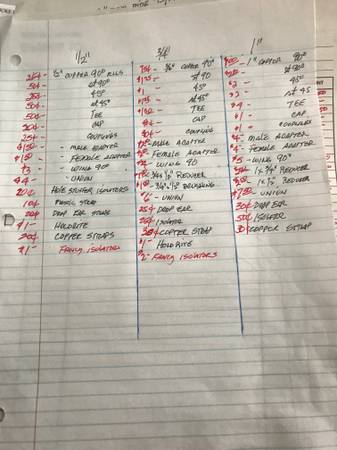 1/2"
25¢ - 1/2" COPPER 90° ELLS
50¢ - ST 90°
45°
50¢ - ST 45°
50¢ - TEE
CAP
25¢ - COUPLINGS
- MALE ADAPTER
- FEMALE ADAPTER
$3 - WING 90
$4 - UNION
20¢ HOLE STOFFER ISOLATORS
10¢
20¢ DROP EAR
$1 - HOLDRITE
20¢ COPPER STRAPS
$1 - FANCY ISOLATORS
3/4"
3/4" COPPER 90°
ST 90
45°
ST 45°
TEE
CAP
COUPLING
MALE ADAPTER
FEMALE ADAPTER
WING 90
3/4 x 1/2" REDUCER
3/4 x 1/2 BUSHING
$6 - UNION
25¢ DROP EAR
ISOLATOR
30¢ COPPER STRAP
$1 - HOLDRITE
$2 - FANCY ISOLATORS
1"
- 1" COPPER 90°
ST 90°
$2 - 45°
$2 - ST 45
$4 - TEE
$1 - CAP
$1 - COUPLING
$4 - MALE ADAPTER
$4 - FEMALE ADAPTER
$5 - WING 90°
1 x 3/4" REDUCER
1 x 1/2 REDUCER
- UNION
30¢ DROP EAR
30¢ ISOLATER
30¢ COPPER STRAP